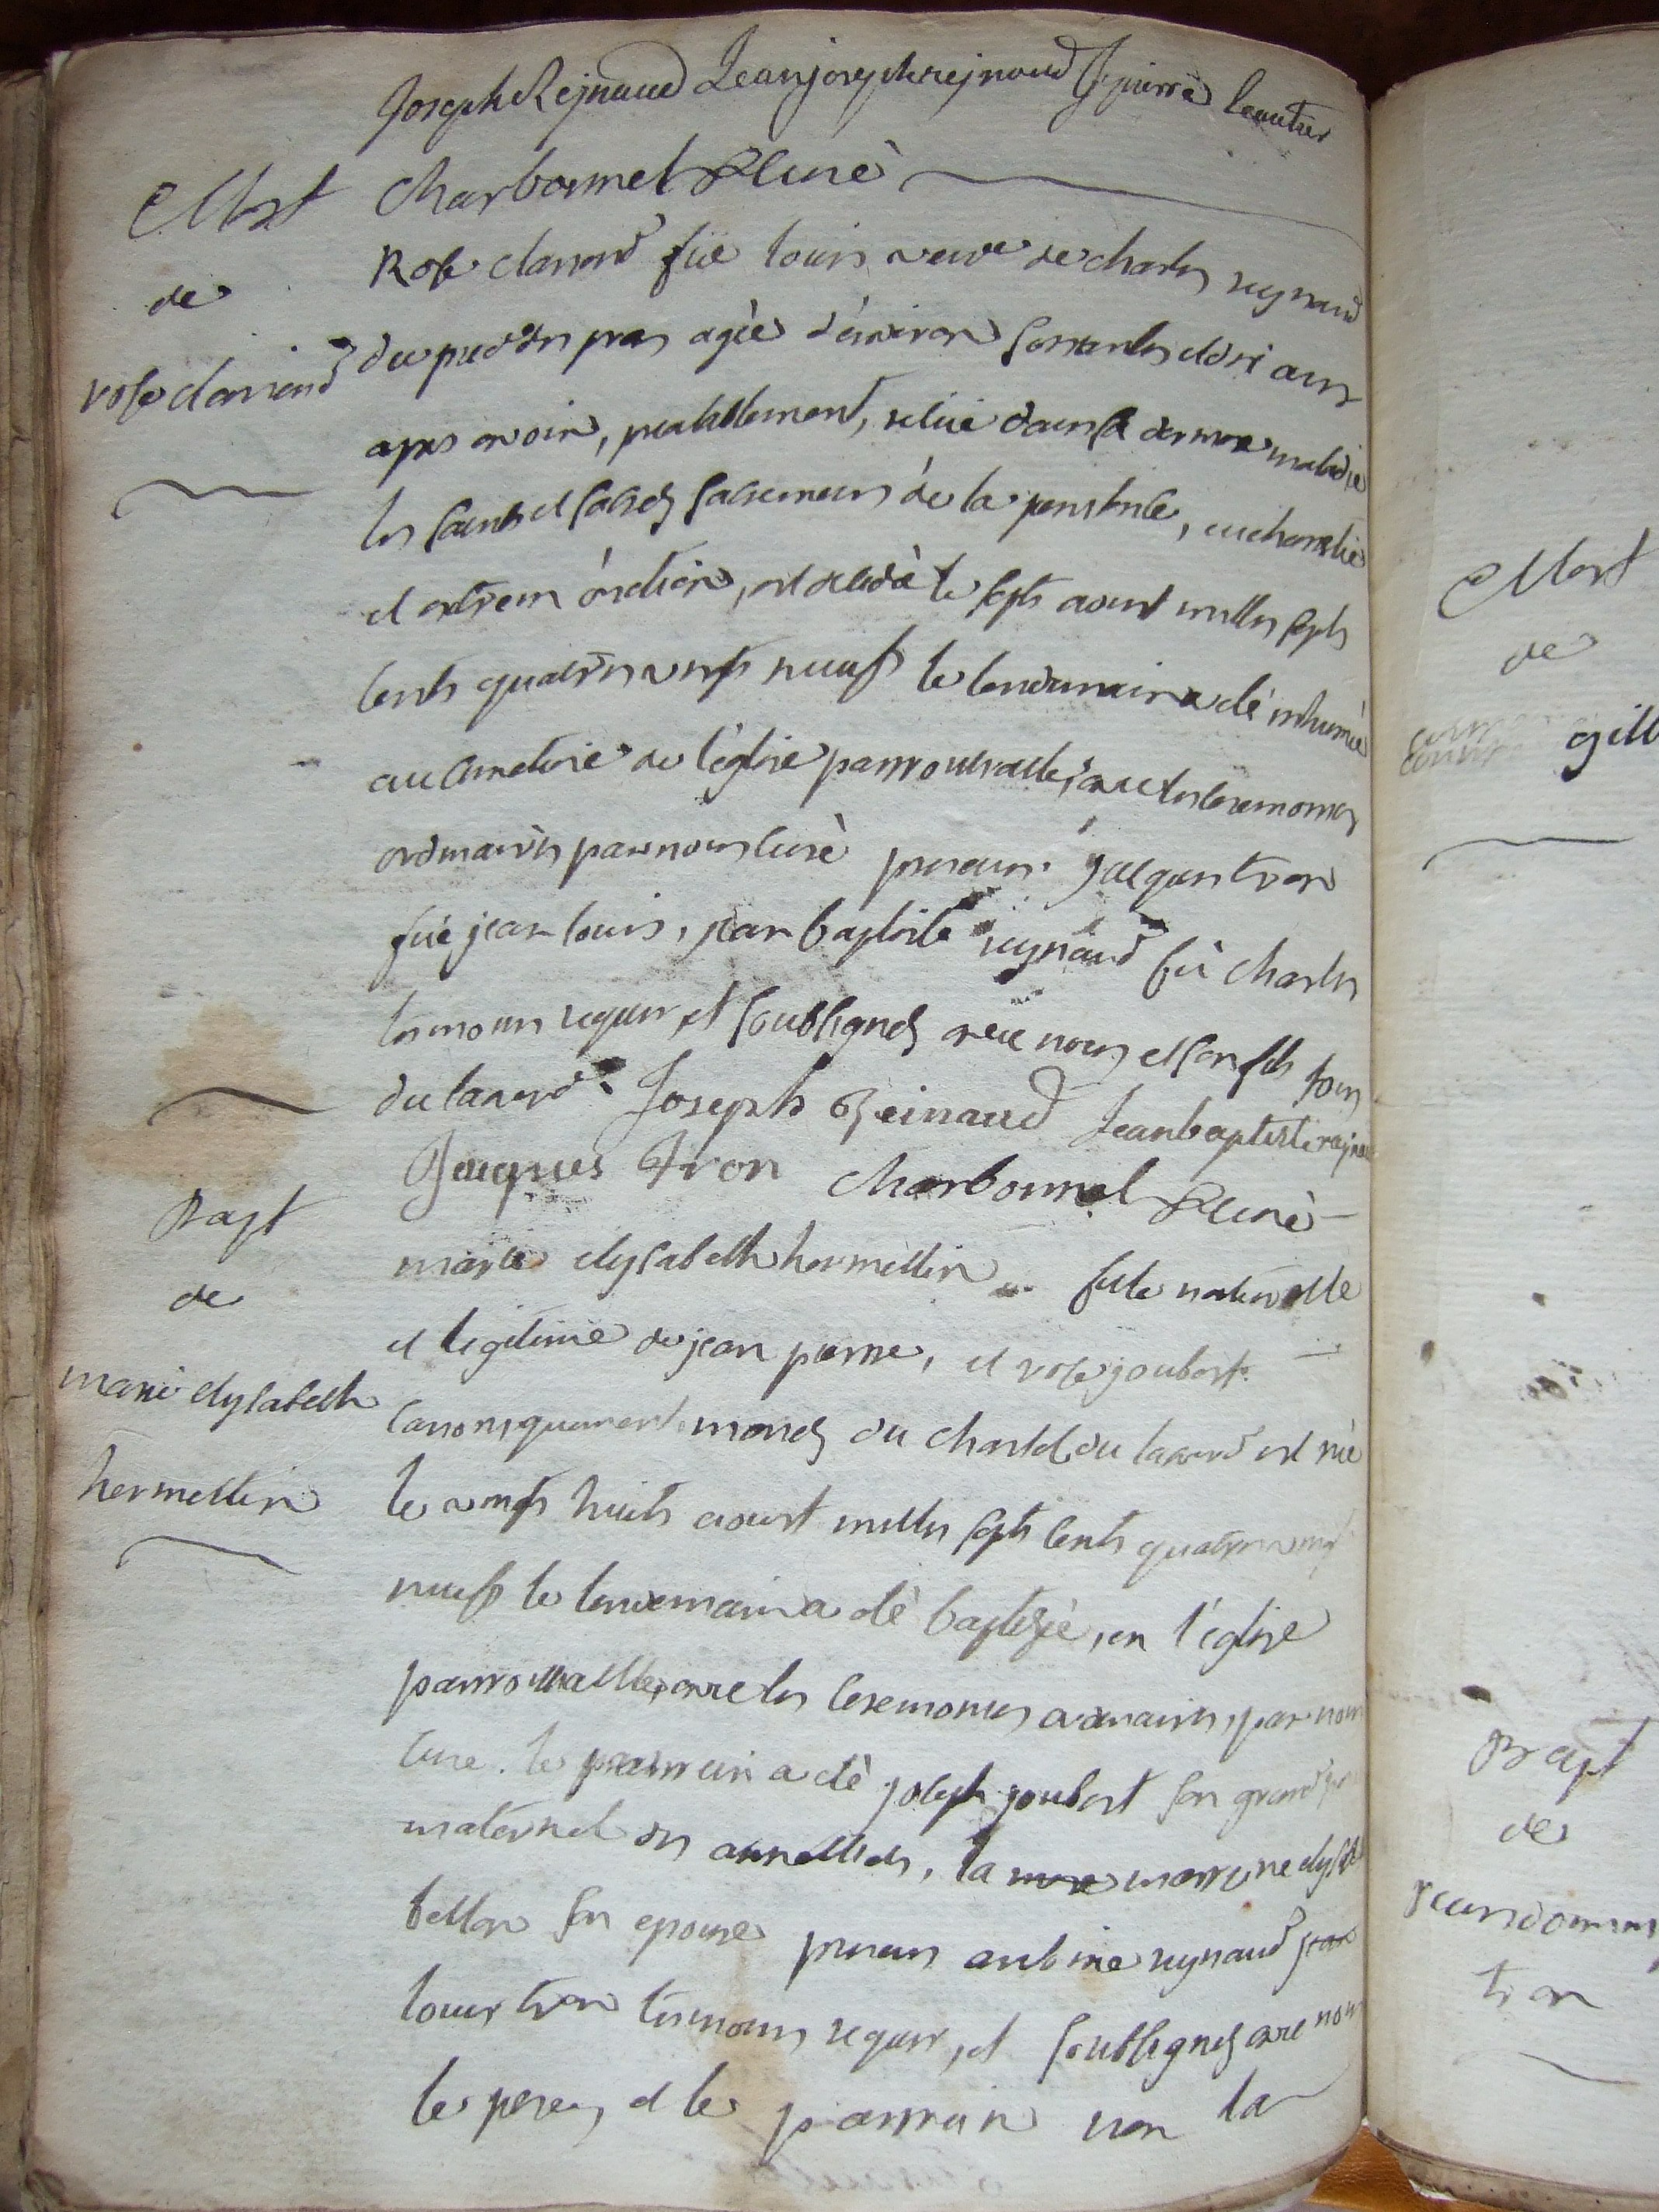 Joseph Rejnaud Jean joseph rejnaud J pierre leautier
Mort
de
rose clariond
Charbonnel Curè
Rose clariond füe louis veuve de charles reynaud
du pied des pras agèe d'énviron soixantes et dix ans
apres avoir, prealablement, reçüe dans sa derniere maladie
les saints et sacrés sacremens de la penitence, eucharistie
et extrem ónction, est decedèe le septs aoust milles septs
cents quatres vingts neufs le lendemain a été inhumèe
au cimetiere de l'église parroissialle, avec les ceremonies
ordinaires par nous curè presens jacques tron
füe jean louis, jean baptiste reynaud fü charles
temoins requis, et soussignés avec nous et son fils tous
du lavard. Joseph Reinaud Jean baptiste rajnau
Jacques tron Charbonnel Curè
Bapt
de
marie elysabeth
hermettin
marie elysabeth hermettin fille naturelle
et legitime de jean pierre, et rose joubert
canoniquement mariés du chastel du lavard est nèe
le vingts huits aoust milles septs cents quatres vingt
neufs le lendemain a été baptizèe, en l'église
parroissialle, avec les ceremonies ordinaires, par nous
curè. le parrain a été joseph joubert son grand pere
maternel des la marrine
son epouse presens antoine reynaud jean
louis tron temoins requis, et soussignés avec nous
les peres, et le parrain non la
Mort
de
gill
Bapt
de
tron